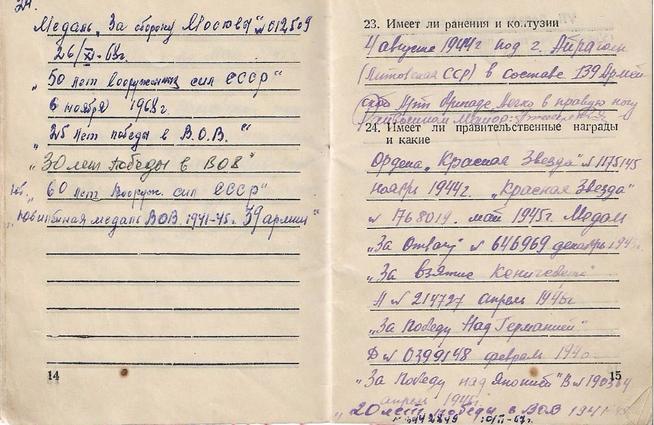 24.
Медаль „За оборону Москвы" № 012509
26/XI-63г.
„50 лет вооруженных сил СССР
6 ноября 1968г
„25 лет победы в В.О.В. "
„30 лет победы в ВОВ"
юб. „60 лет Вооруж. сил СССР"
„Юбилейная медаль ВОВ. 1941-45г. 39 армии"
14
23. Имеет ли ранения и контузии
4 августа 1944г под г.
(Литовская ССР) в составе 139
Арт бригаде, Легко в правую ногу
24. Имеет ли правительственные награды
и какие
Ордена „Красная Звезда" № 1175145
ноябрь 1944г. „Красная Звезда"
№ 1768019. май 1945г. Медали
„За Отвагу" № 646969 декабрь
„За взятие
А № 214727 апрель 1946г
„За Победу Над Германией"
№ 0399148 февраль
15
„За Победу над Японией" В №
апрель 1946г
„20 лет победы в ВОВ 1941-45